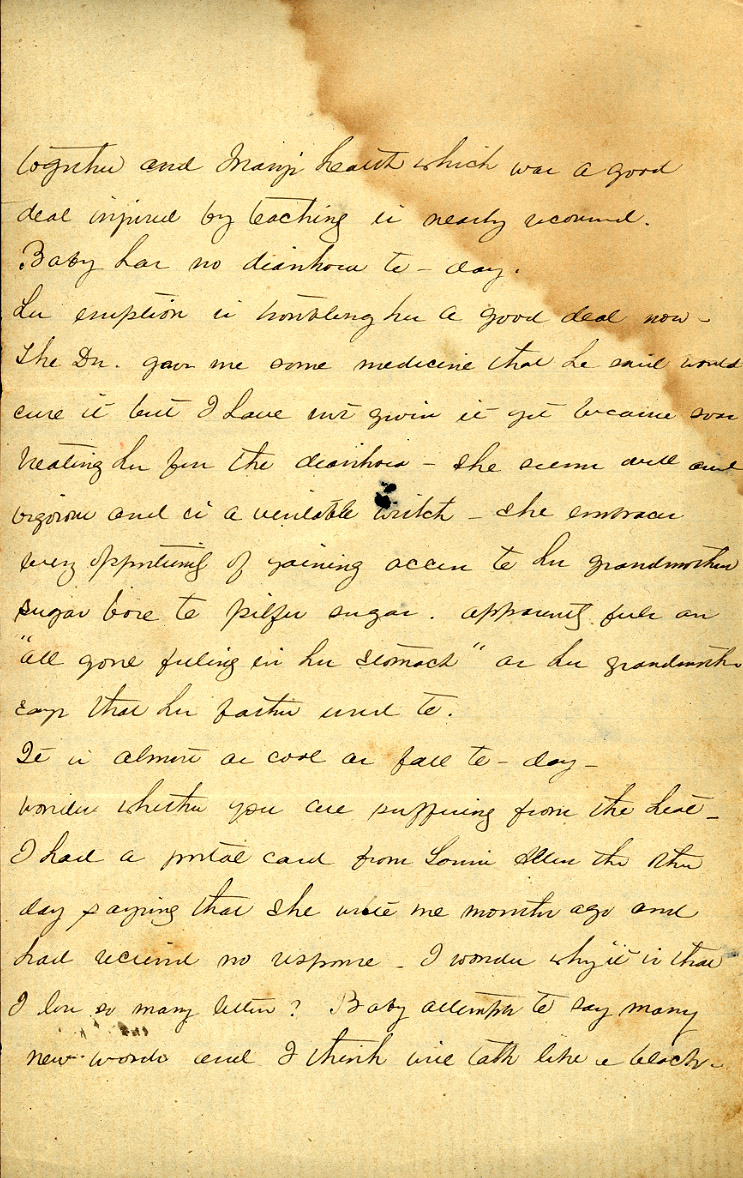 together and Mary's health which was a good
deal injured by teaching is nearly recovered.
Baby has no diarrhoea to-day.
Her eruption is troubling her a good deal now -
The Dr. gave me some medicine that he said would
cure it but I have not given it yet because was
treating her for the diarrhoea - She seems well and
vigorous and is a veritable witch - She embraces
every opportunity of gaining access to her grandmother
sugar box to pilfer sugar. apparently feels an
"all gone feeling in her stomach" as her grandmother
says that her father used to.
It is almost as cool as fall to-day -
wonder whether you are suffering from the heat -
I had a postal card from Allen the other
day saying that she wrote me months ago and
had received no response - I wonder why it is that
I lose so many letters? Baby attempts to say many
new words and I think will talk like a black-